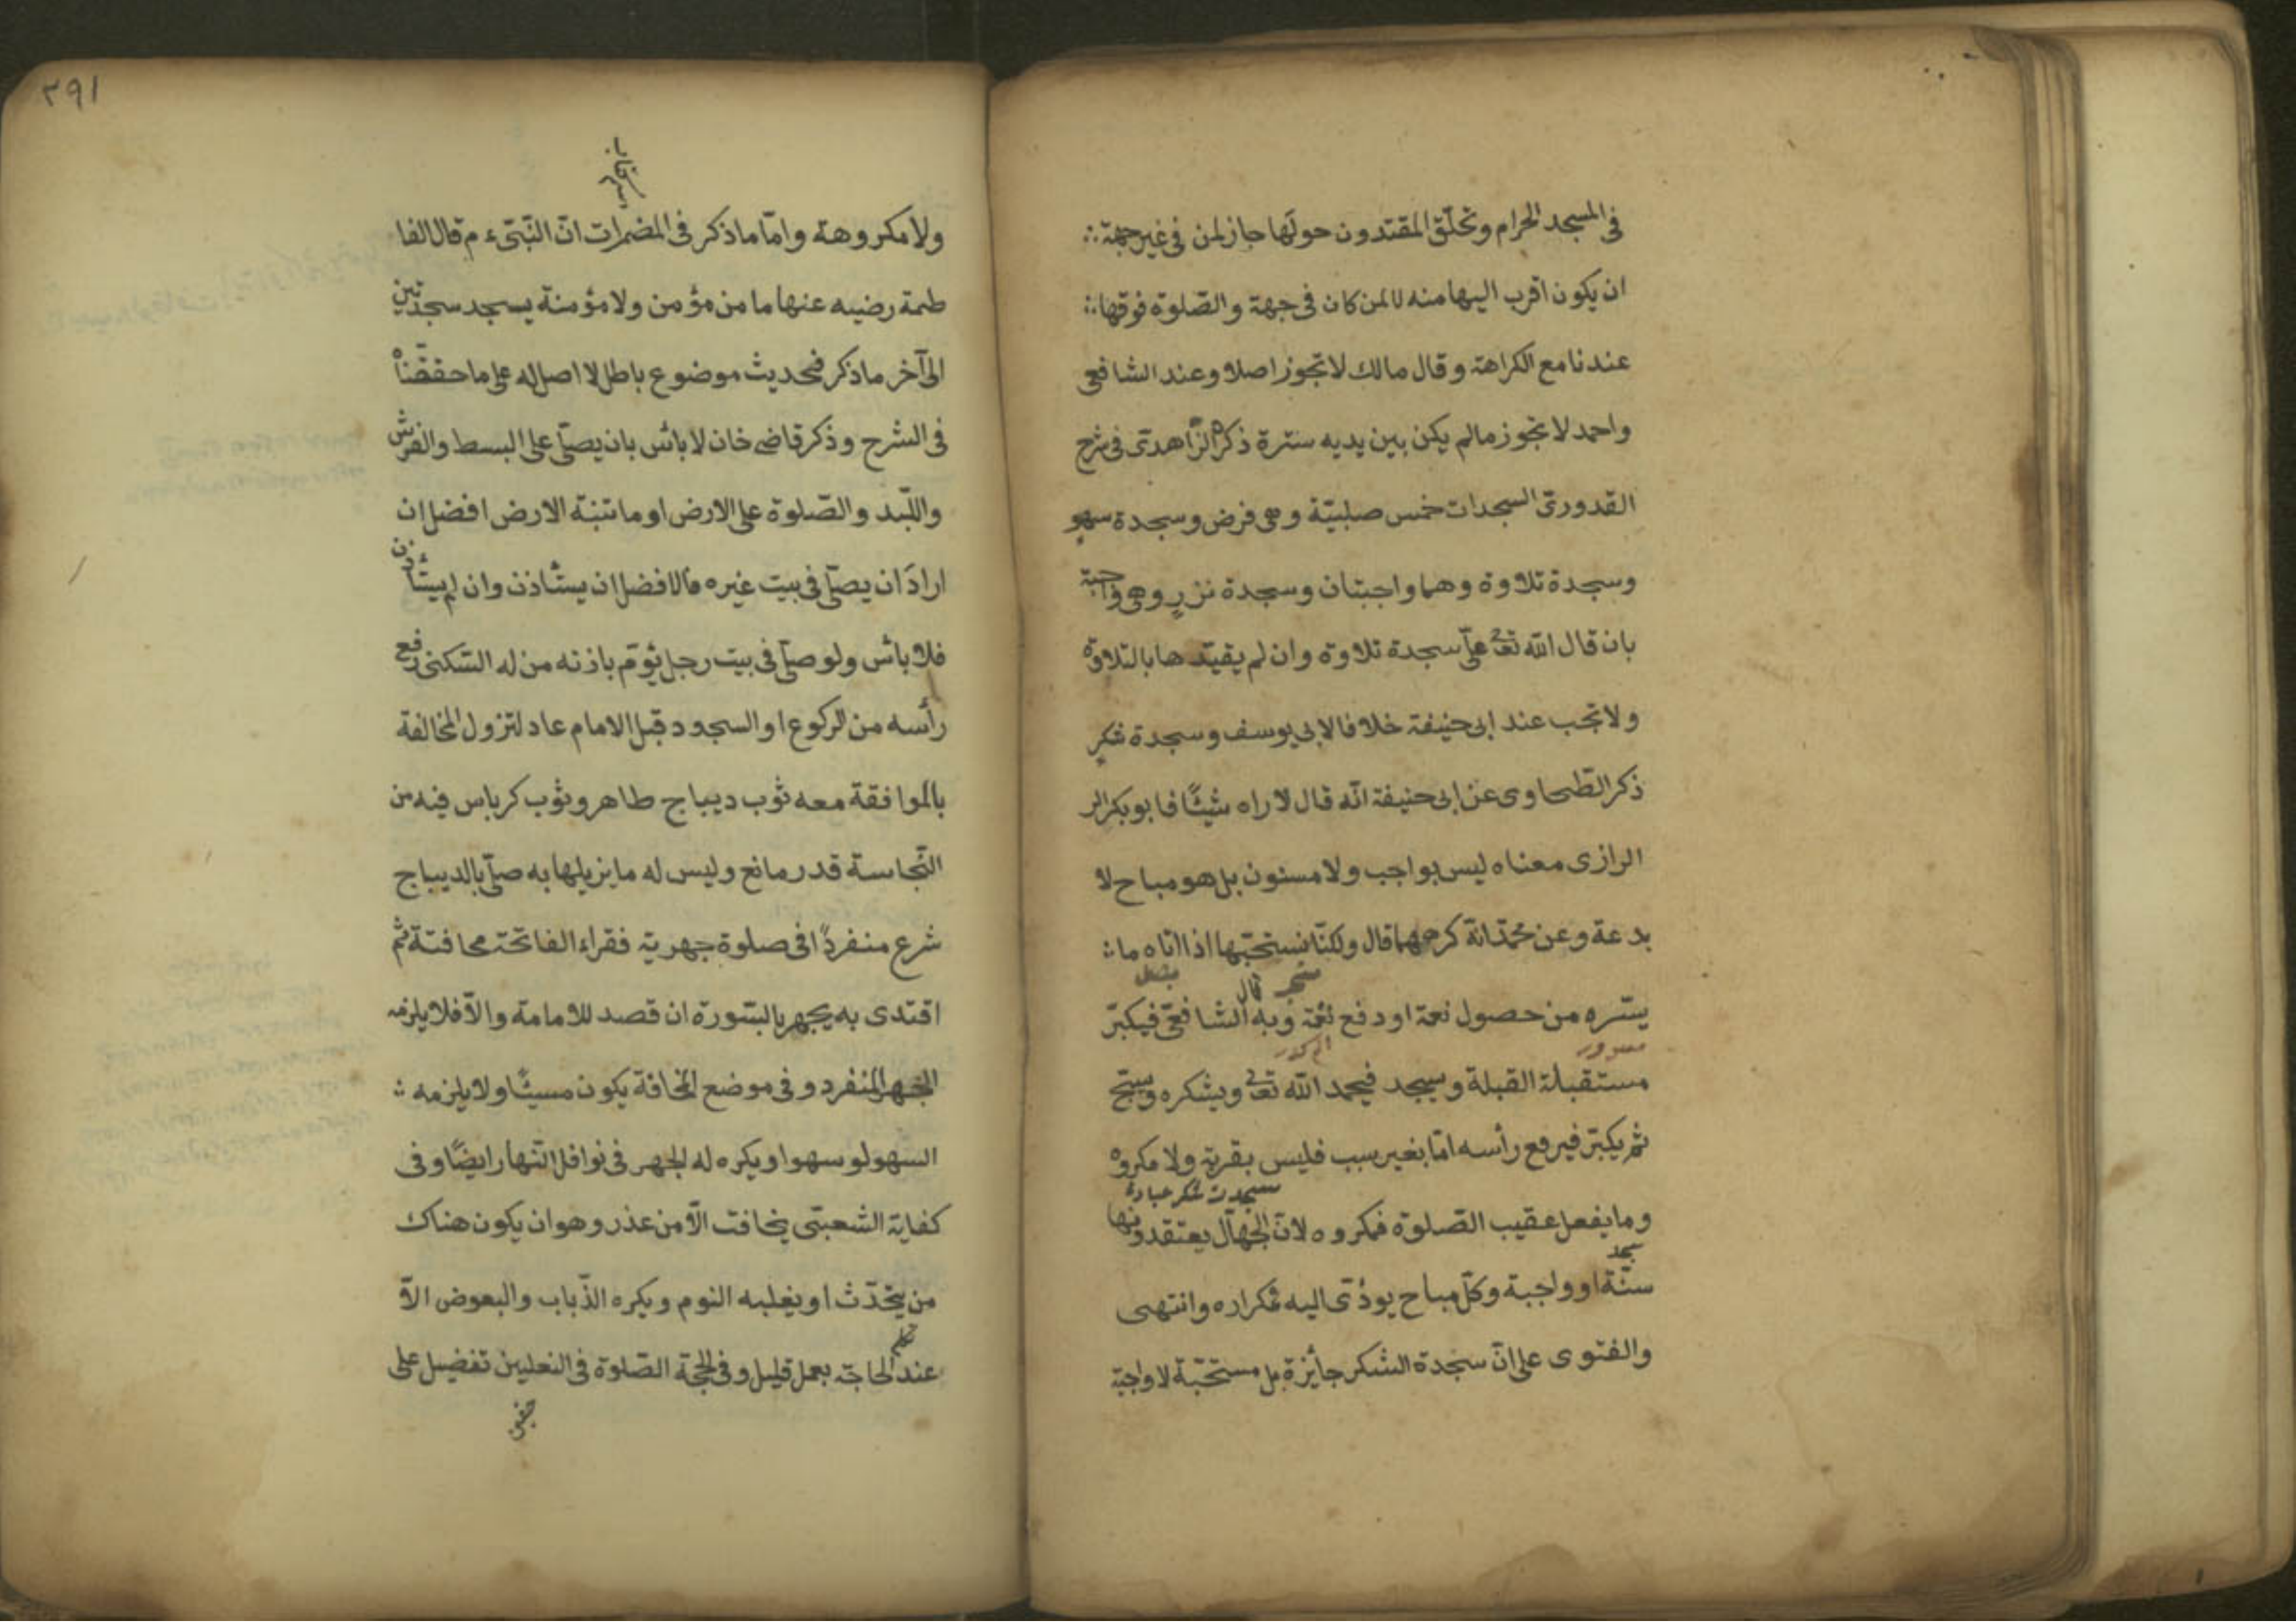 فى المسجد الحرام وتحلّق المقتدون حولها جاز لمن فى غير جهة
ان يكون اقرب اليها منه لا لمن كان فى جهة والصّلوة فوقها
عندنا مع الكراهة وقال مالك لا تجوز اصلا وعند الشافعى
واحمد لا تجوز مالم يكن بين يديه سترة ذكره الزّاهدىّ فى شرح
القدورىّ السجدات خمس صلبيّة وهى فرض وسجدة سهو
وسجدة تلاوة وهما واجبتان وسجدة نزرٍ وهى واجبة
بان قال الله تعالى علىّ سجدة تلاوة وان لم يقيّدها بالتلاوة
ولا تجب عند ابى حنيفة خلافا لابى يوسف وسجدة شكرٍ
ذكر الطّحاوى عن ابى حنيفة انّه قال لا راه شيئًا فا بو بكر الر
الرازى معناه ليس بواجب ولا مسنون بل هو مباح لا
بدعة وعن محمّد انّه كرهها قال ولكنّا نستحبّها اذا اتاه ما
يسّره من حصول نعمة او دفع نقمة وبه قال الشافعىّ فيكبّر
مستقبلة القبلة ويسجد فيحمد الله تعالى ويشكره ويسبّح
ثم يكبّر فيرفع رأسه امّا بغير سبب فليس بقربة ولا مكروه
سجدت شكر عبادة
وما يفعل عقيب الصّلوة فمكروه لانّ الجهّال يعتقدونها
سنّة او واجبة وكلّ مباح يودّى اليه فمكراره وانتهى
والفتوى على انّ سجدة الشكر جائزة بل مستحبّة لا واجبة
٢٩١
ولا مكروهة وامّا ماذكر فى المضمرات انّ النّبىّء م قال الفا
طمة رضيه عنها ما من مؤمن ولا مؤمنة يسجد سجدتين
الى آخر ماذكر فحديث موضوع باطل لا اصل له على ما حققناه
فى الشرح وذكر قاضى خان لا بائس بان يصلّى على البسط والفرش
واللّبد والصّلوة على الارض او ما تنبته الارض افضل ان
ارادَ ان يصلّى فى بيت غيره فالافضل ان يستأذن وان لم يستأذن
فلا بائس ولو صلّى فى بيت رجل يؤمّ باذنه من له السّكنى رفع
رأسه من الركوع او السجود قبل الامام عاد لتزول المخالفة
بالموافقة معه ثوب ديباج طاهر وثوب كرباس فيه من
النّجاسة قدر مانع وليس له ما يزيلها به صلّى بالديباج
شرع منفردًا فى صلوة جهرية فقراء الفاتحة مخافتة ثم
اقتدى به يجهر بالسّورة ان قصد للامامة والاّ فلا يلزمه
الجهر المنفرد وفى موضع المخافة يكون مسيئًا ولا يلزمه
السهو لو سهوا ويكره له الجهر فى نوافل النّهار ايضًا وفى
كفاية الشعبىّ يخافت الاّ من عذر وهو ان يكون هناك
من يتحدّث او يغلبه النوم ويكره الذّباب والبعوض الاّ
عند الحاجة بعمل قليل وفى الحجّة الصّلوة فى النعلين تفضيل على